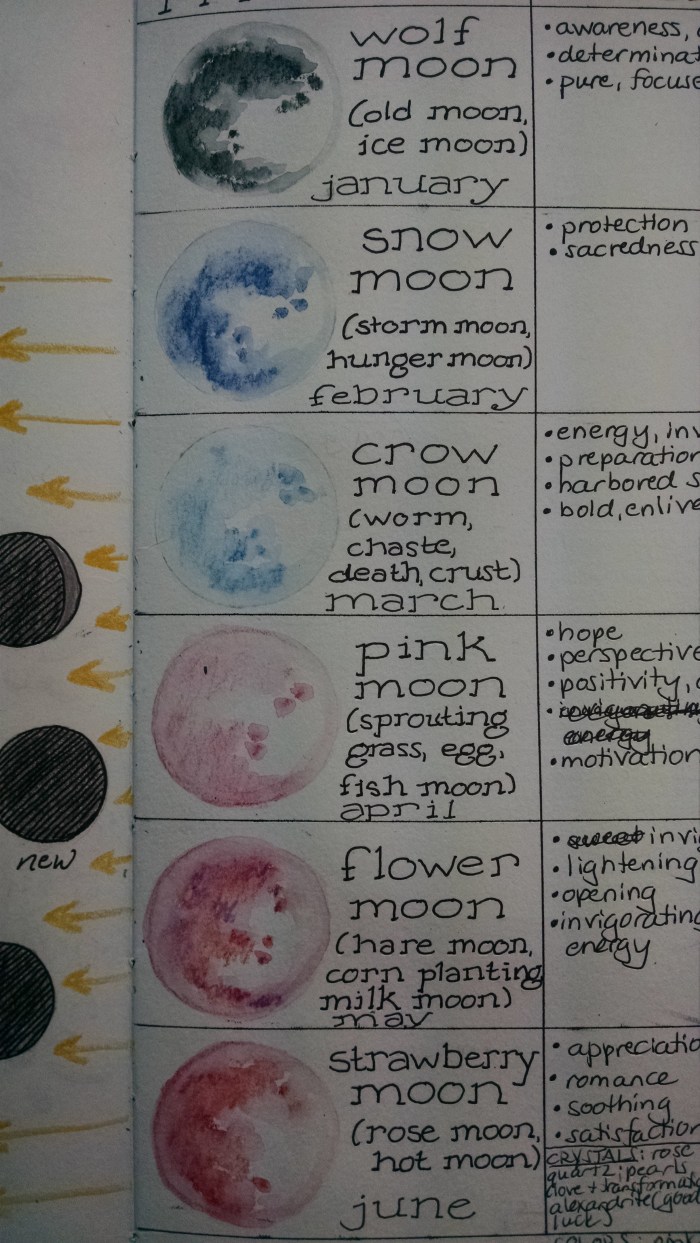 wolf
moon
(old moon,
ice moon)
january
• awareness,
• determinat
• pure, focuse
snow
moon
(storm moon,
hunger moon)
february
• protection
• sacredness
crow
moon
(worm,
chaste,
death, crust)
march
• energy, inv
• preparation
• harbored s
• bold, enlive
pink
moon
(sprouting
grass, egg,
fish moon)
april
• hope
• perspective
• positivity,
energy
• motivation
flower
moon
(hare moon,
corn planting
milk moon)
may
• sweet invi
• lightening
• opening
• invigorating
energy
strawberry
moon
(rose moon,
hot moon)
june
• appreciatio
• romance
• soothing
• satisfaction
CRYSTALS: rose
quartz; pearls
love + transformati
alexandrite (good
luck)
new